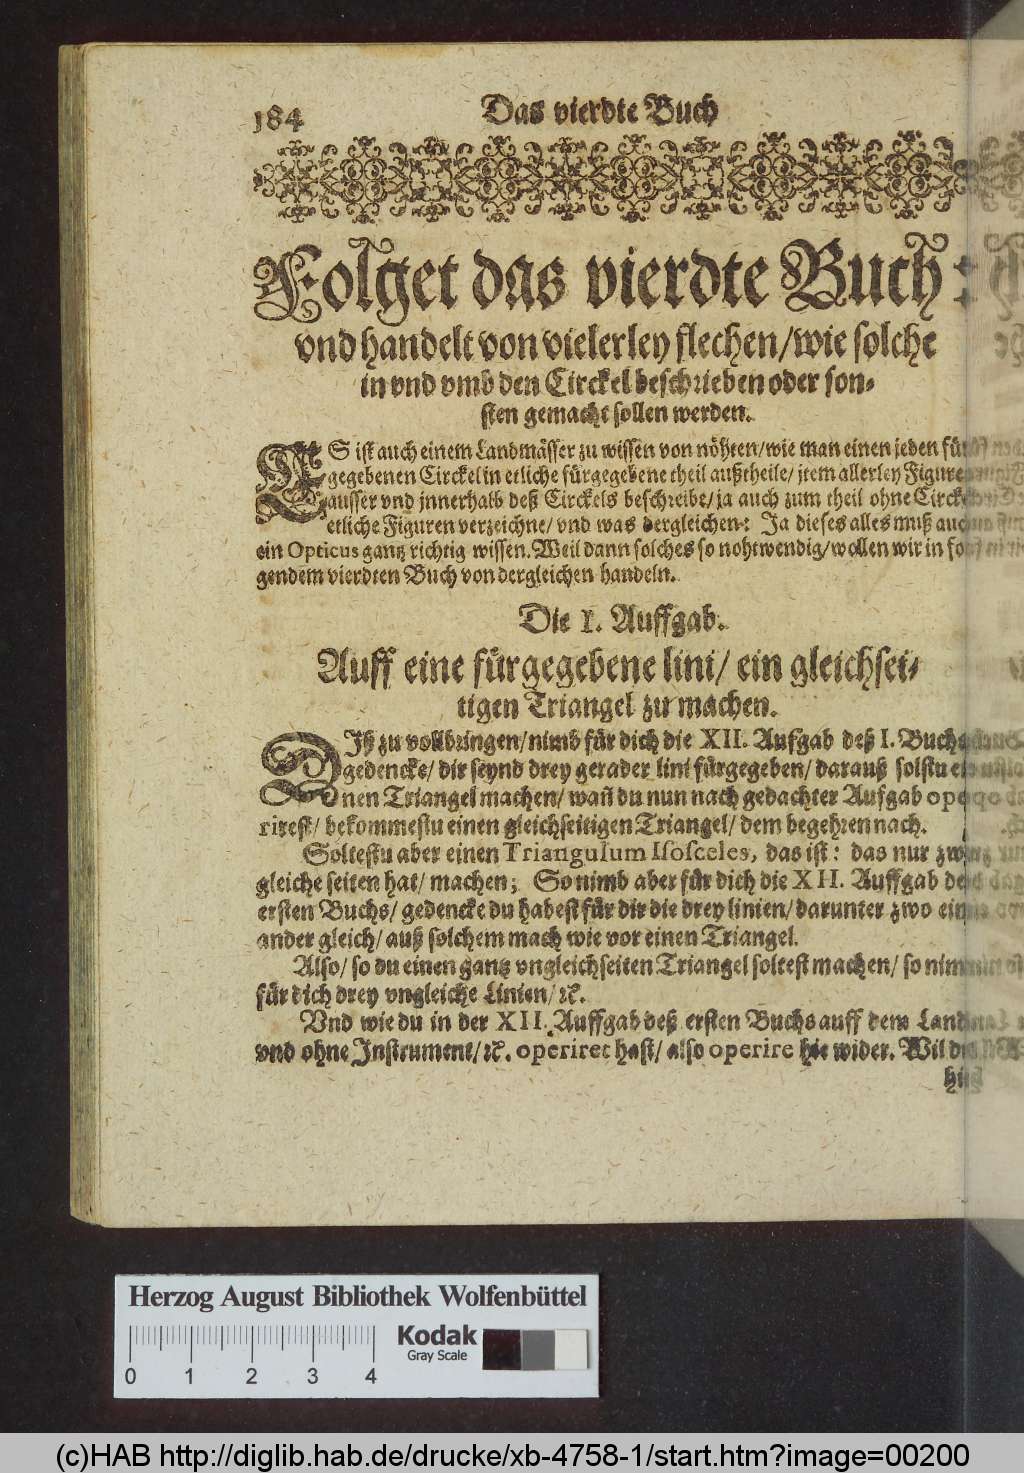 184 Das vierdte Buch
Folget das vierdte Buch:
vnd handelt von vielerley flechen/wie solche
in vnd vmb den Circkel beschrieben oder son-
sten gemacht sollen werden.
ES ist auch einem Landmässer zu wissen von nöhten/wie man einen jeden
gegebenen Circkel in etliche fürgegebene theil außtheile/ jtem allerley
ausser vnd jnnerhalb deß Circkels beschreibe/ ja auch zum theil ohne
etliche Figuren verzeichne/ vnd was dergleichen: Ja dieses alles muß
ein Opticus gantz richtig wissen. Weil dann solches so nohtwendig/wollen wir in
gendem vierdten Buch von dergleichen handeln.
Die I. Auffgab.
Auff eine fürgegebene lini/ ein gleichsei-
tigen Triangel zu machen.
DIß zu vollbringen/nimb für dich die XII. Aufgab deß I. Buchs
gedencke/ dir seynd drey gerader lini fürgegeben/ darauß solstu
nen Triangel machen/ wañ du nun nach gedachter Aufgab
rirest/ bekommestu einen gleichseitigen Triangel/ dem begehren nach.
Soltestu aber einen Triangulum Isosceles, das ist: das nur
gleiche seiten hat/ machen; So nimb aber für dich die XII. Auffgab
ersten Buchs/ gedencke du habest für dir die drey linien/ darunter zwo
ander gleich/ auß solchem mach wie vor einen Triangel.
Also/ so du einen gantz vngleichseiten Triangel soltest machen/ so
für dich drey vngleiche Linien/ ꝛc.
Vnd wie du in der XII. Auffgab deß ersten Buchs auff dem
vnd ohne Instrument/ ꝛc. operiret hast/ also operire hie wider. Wil
Herzog August Bibliothek Wolfenbüttel
Kodak
Gray Scale
0 1 2 3 4
(c)HAB http://diglib.hab.de/drucke/xb-4758-1/start.htm?image=00200